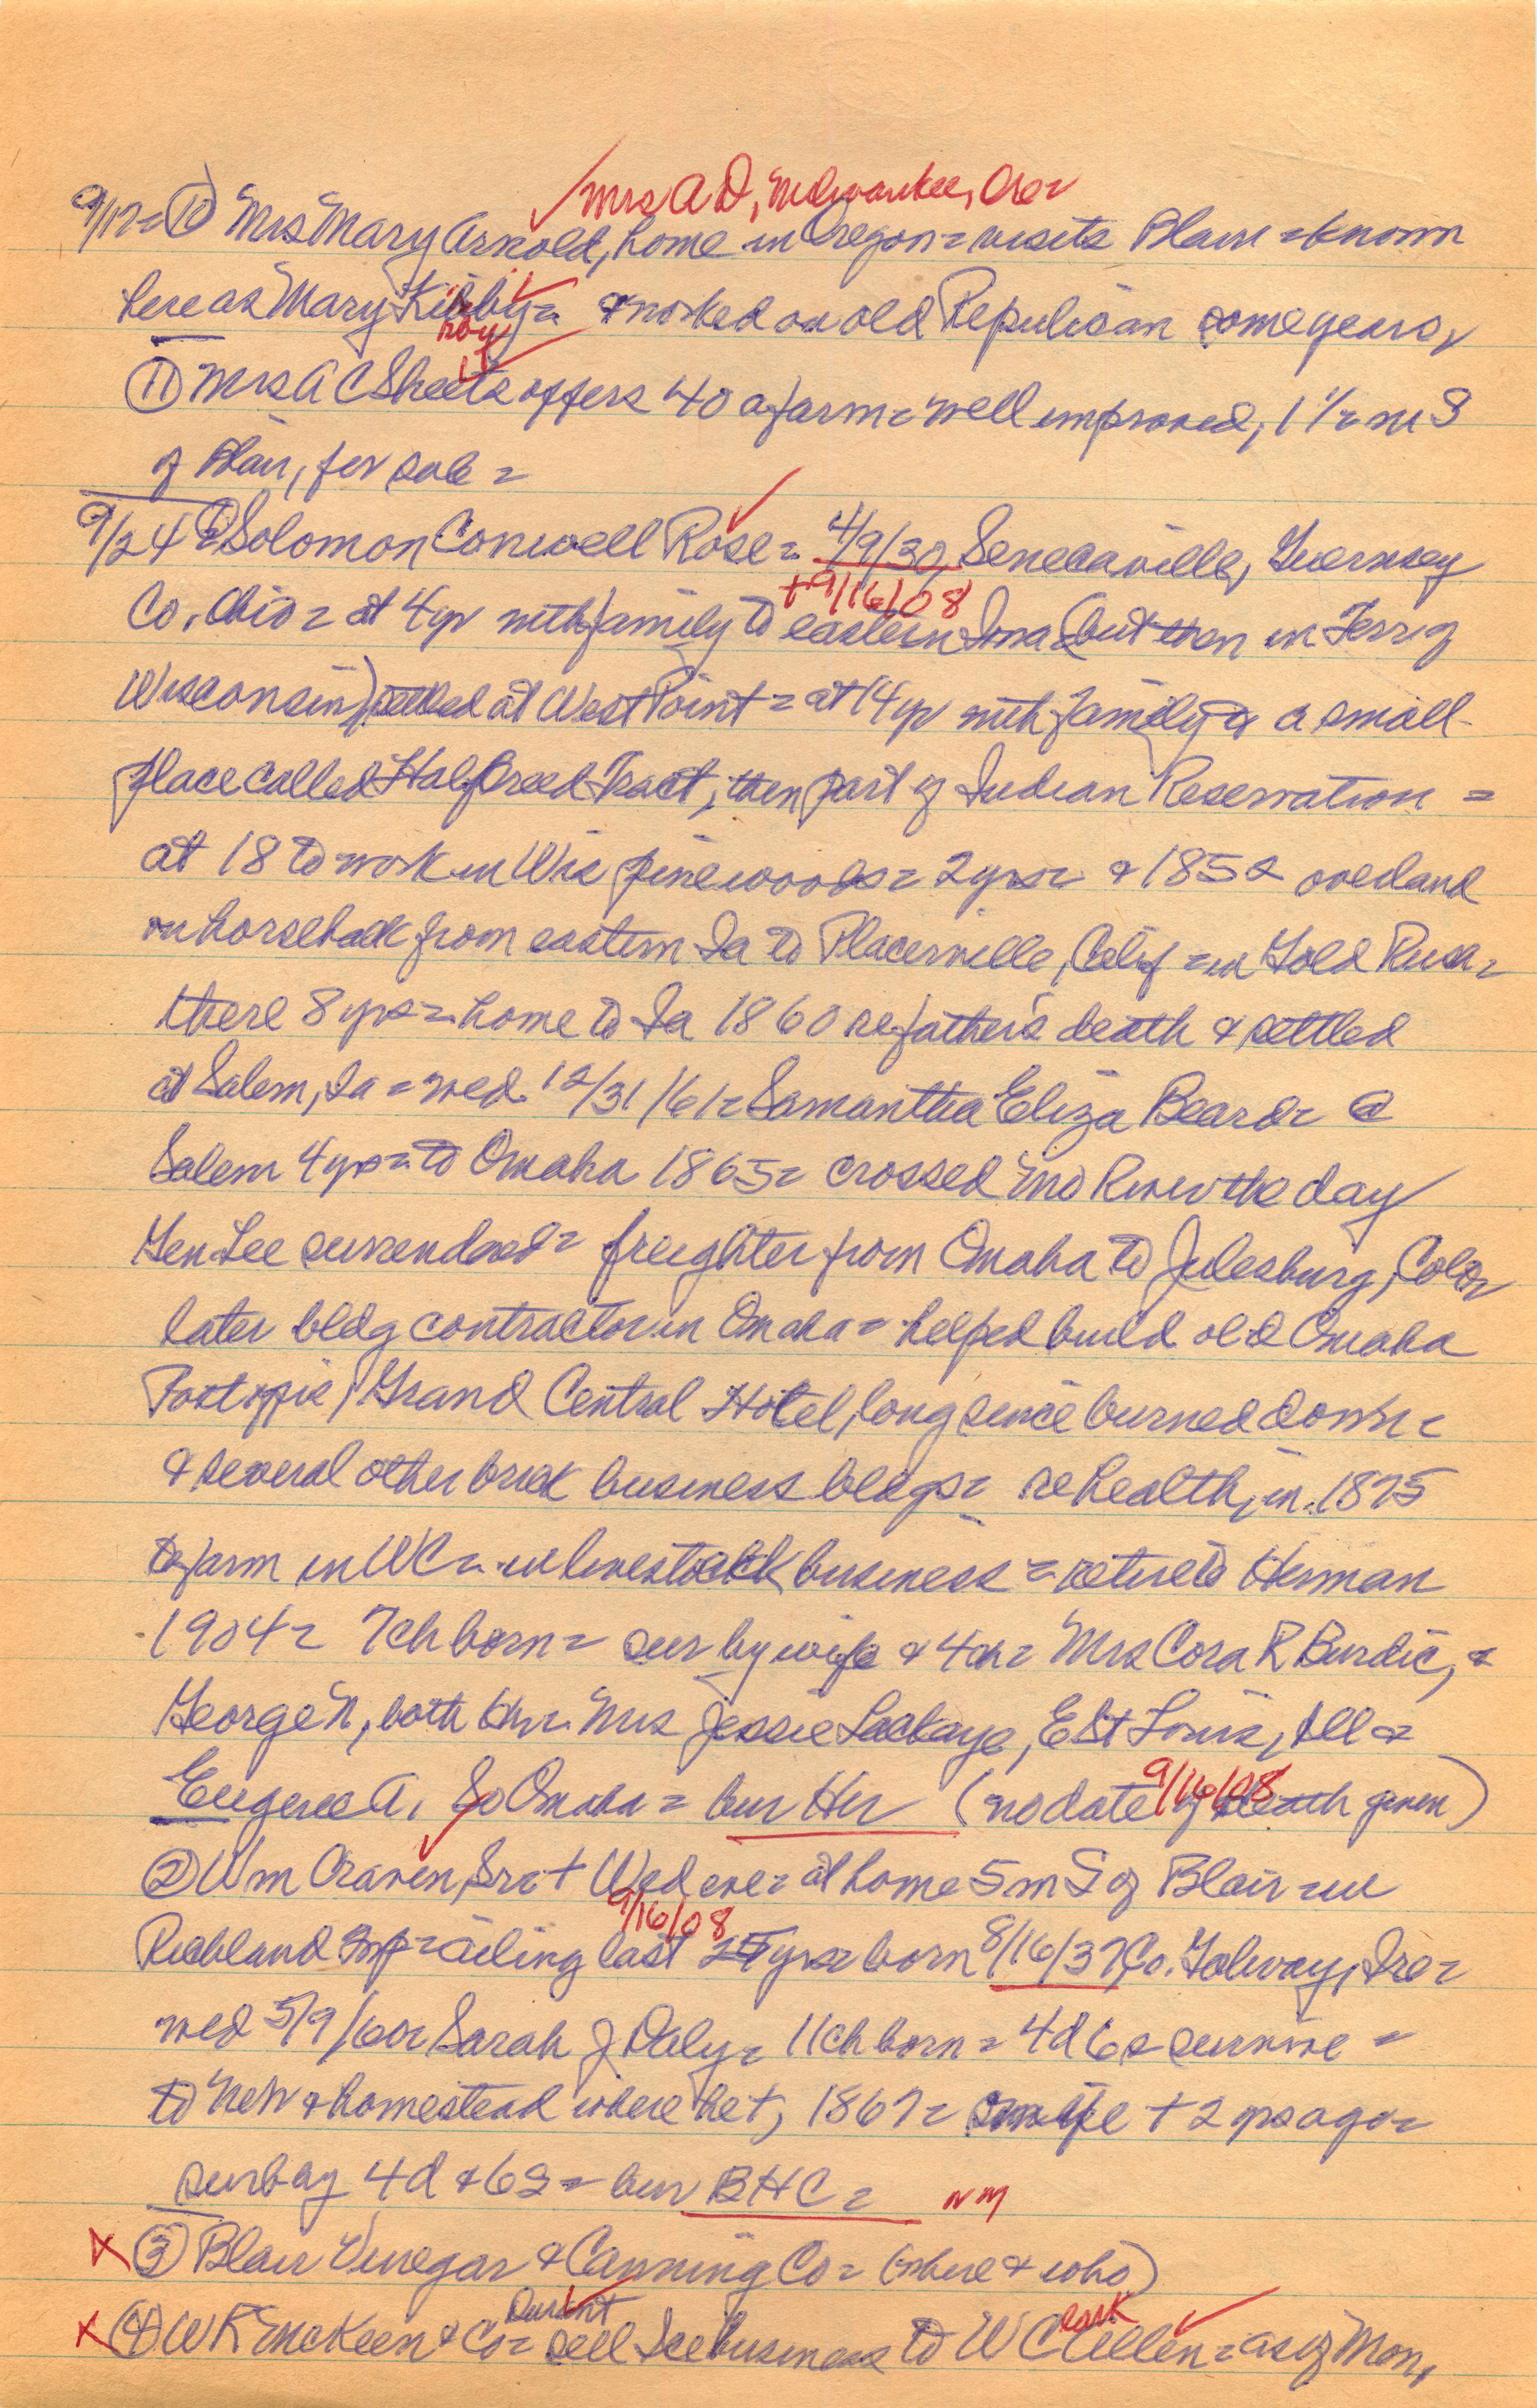 ✓ Mrs A D, Milwaukee, Ore
9/17 = ⑩ Mrs Mary Arnold, home in Oregon = visits Blair = known
here as Mary Kirby = & worked on old Republican some years,
⑪ Mrs A C Sheets offers 40 a farm = well improved, 1 1/2 m S
of Blair, for sale =
9/24 = ① Solomon Conwell Rose = 4/9/30, Senecaville, Guernsey
+9/16/08
Co. Ohio = at 4 yr with family to eastern Iowa (but then in Terr of
Wisconsin) settled at West Point = at 14 yr with family to a small
place called Half Breed Tract, then part of Indian Reservation =
at 18 to work in Wis pine woods = 2 yrs = & 1852 overland
on horseback from eastern Ia to Placerville, Calif = in Gold Rush =
there 8 yrs = home to Ia 1860 re father's death & settled
at Salem, Ia = wed 12/31/61 = Samantha Eliza Beard = @
Salem 4 yrs = to Omaha 1865 = crossed Mo River the day
Gen Lee surrendered = freighter from Omaha to Julesburg, Colo =
later bldg contractor in Omaha = helped build old Omaha
Postoffice, Grand Central Hotel, long since burned down =
& several other brick business bldgs = re health, in 1875
to farm in WC = in livestock business = retire to Herman
1904 = 7 ch born = sur by wife & 4 ch = Mrs Cora R Burdic, &
George N, both Her = Mrs Jessie Lackaye, E St Louis, Ill &
Eugene A, So Omaha = bur Her (no date of death given)
9/16/08
② Wm Craven, Sr = + Wed eve = at home 5 m S of Blair = in
9/16/08
Richland Twp = ailing last yrs = born 8/16/37, Co. Galway, Ire =
wed 5/9/60 = Sarah J Daly = 11 ch born = 4d 6s survive =
to Neb & homestead where he +, 1867 = wife + 2 yrs ago =
sur by 4d & 6s = bur BHC = nm
X ③ Blair Vinegar & Canning Co = (where & who)
Durant Clark
X ④ W R McKeen & Co = sell Ice business to W C Allen = as of Mon,